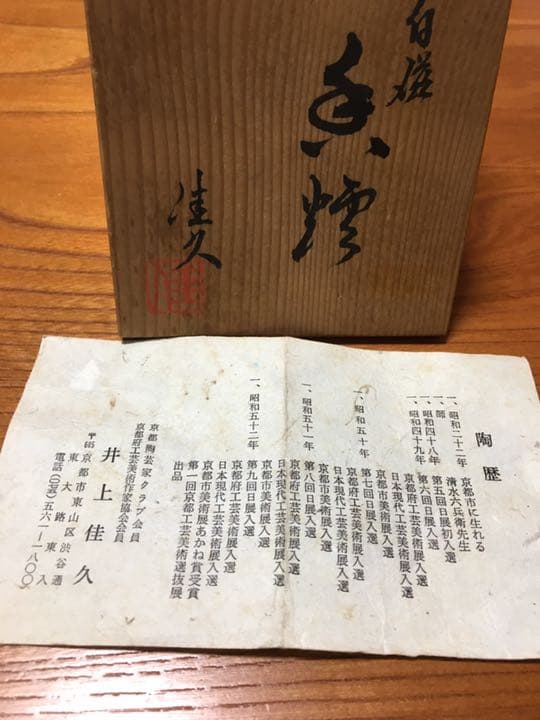 白磁
香炉
佳久
陶歴
一、昭和二十二年 京都市に生れる
一、師 清水六兵衛先生
一、昭和四十八年 第五回日展初入選
一、昭和四十九年 第六回日展入選
京都市美術展入選
日本現代工芸美術展入選
一、昭和五十年 第七回日展入選
京都府工芸美術展入選
日本現代工芸美術展入選
一、昭和五十一年 第八回日展入選
京都市美術展入選
京都府工芸美術展入選
日本現代工芸美術展入選
一、昭和五十二年 第九回日展入選
京都府工芸美術展入選
日本現代工芸美術展入選
京都市美術展あかね賞受賞
第一回京都工芸美術選抜展
出品
京都陶芸家クラブ会員
京都府工芸美術作家協会会員
井上佳久
〒605 京都市東山区渋谷通
東大路東入
電話(〇七五)五六一-一八〇〇